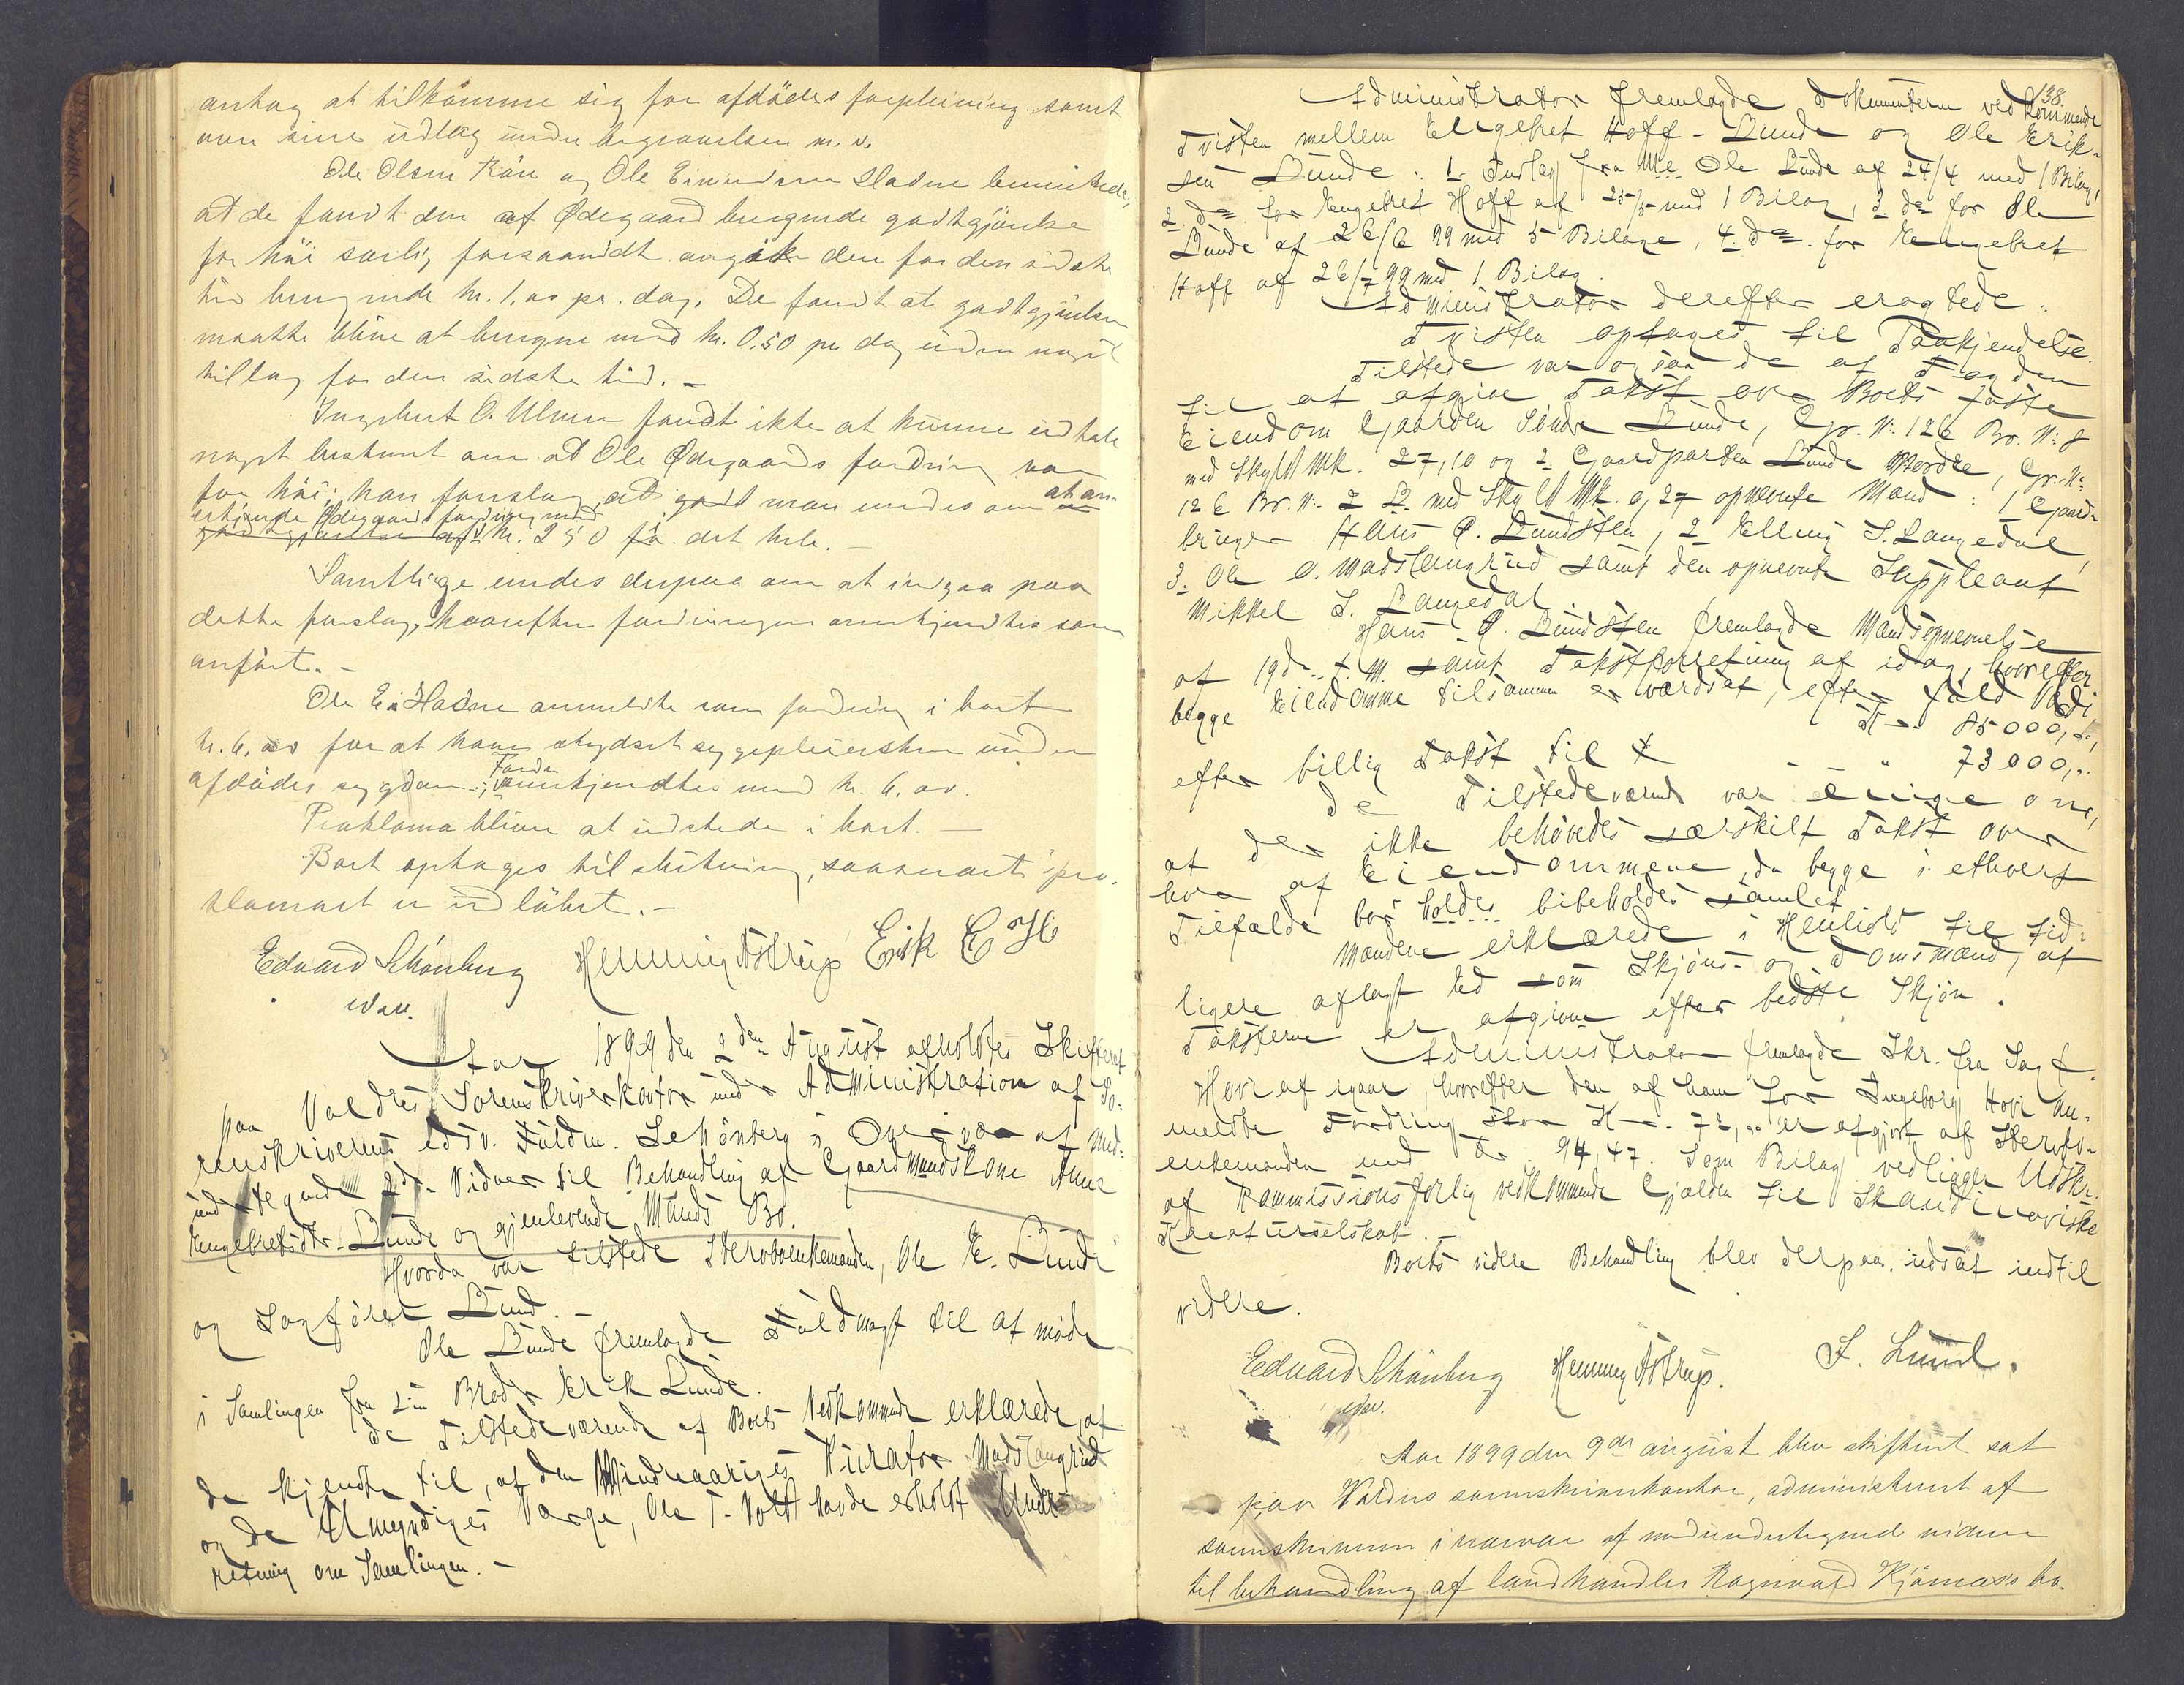 antog at tilkomme sig for afdödes forpleining samt
over sine udlæg under begravelsen m. v.
Ole Olsen Røn og Ole Eivindsen Hadne bemerkede,
at de fandt den af Ødegaard beregnede godtgjörelse
for höi særlig forsaavidt angik den for den sidste
tid beregnede kr. 1,00 pr. dag. De fandt at godtgjörelsen
maatte blive at beregne med kr. 0.50 pr dag uden noget
tillæg for den sidste tid. -
Ingebret O. Ulven fandt ikke at kunne udtale
noget bestemt om at Ole Ødegaards fordring var
for höi; han foreslog, at man enedes om at an-
erkjende Ødegaards fordring med
kr. 250 for det hele. -
Samtlige enedes derpaa om at indgaa paa
dette forslag, hvorefter fordringen anerkjendtes som
anfört. -
Ole E. Hadne anmeldte som fordring i boet
kr. 6,00 for at have skydset sygepleiersken under
afdödes sygdom; Fordr. anerkjendtes med kr. 6,00.
Proklama bliver at udstede i boet. -
Boet optages til slutning, saasnart pro-
klamaet er udlöbet. -
Edvard Schönberg Henning Astrup Erik E. H.
edsv.
Aar 1899 den 2den August afholdtes Skifteret
paa Valdres Sorenskriverkontor under Administration af So-
renskriverens edsv. Fuldm. Schönberg i Overvær af med-
undertegnede 2de Vidner til Behandling af Gaardmandskone Anne
Engebretsdtr. Lunde og gjenlevende Mands Bo.
Hvorda var tilstede Stervboenkemanden, Ole E. Lunde
og Sagförer Lund. -
Ole Lunde fremlagde Fuldmagt til at möde
i Samlingen fra sin Broder Erik Lunde.
De Tilstedeværende af Boets Vedkommende erklærede, at
de kjendte til, at den Mindreaariges Kurator Madslangrud
og de Umyndiges Værge, Ole T. Volt havde erholdt Under-
retning om Samlingen. -
138.
Administrator fremlagde Dokumenterne vedkommende
Tvisten mellem Engebret Hoff-Lunde og Ole Erik-
sen Lunde: 1. Indlæg fra Ole Lunde af 24/4 med 1 Bilag,
2. do. for Engebret Hoff af 25/5 med 1 Bilag, 3. do. for Ole
Lunde af 26/6 99 med 5 Bilage, 4. do. for Engebret
Hoff af 26/7 99 med 1 Bilag.
Administrator derefter eragtede:
Tvisten optages til Paakjendelse.
Tilstede var ogsaa de af Fogden
til at afgive Takst over Boets faste
Eiendom Gaarden Söndre Lunde, Gr. No. 126 Br. No. 8
med Skyld Mk. 27,10 og 2 Gaardparten Lunde Nordre, Gr. No.
126 Br. No. 2 med Skyld Mk. 0,27 opnævnte Mænd: 1 Gaard-
bruger Hans A. Lundsten, 2 Elling S. Langedal,
3. Ole O. Madslangrud samt den opnævnte Suppleant
Mikkel S. Langedal.
Hans A. Lundsten fremlagde Mandsopnævnelse
af 19de f. M. samt Takstforretning af idag, hvorefter
begge Eiendomme tilsammen er værdsat, efter fuld Værdi
Kr. 85000,00,
efter billig Takst til Kr. - - " 73000,00.
De Tilstedeværende var enige om,
at der ikke behövedes særskilt Takst over
hver af Eiendommene, da begge i ethvert
Tilfælde bör bibeholdes samlet.
Mændene erklærede i Henhold til tid-
ligere aflagt Ed som Skjöns- og Domsmænd, at
Taksterne er afgivne efter bedste Skjön.
Administrator fremlagde Skr. fra Sagf.
Hovi af igaar, hvorefter den af ham for Ingeborg Hovi an-
meldte Fordring stor Kr. 72,00 er afgjort af Stervbo-
enkemanden med Kr. 94,47. Som Bilag vedligger Udskr.
af Kommissionsforlig vedkommende Gjælden til Skandinaviske
Kreaturselskab. -
Boets videre Behandling blev derpaa udsat indtil
videre.
Edvard Schönberg Henning Astrup. F. Lund.
edsv.
Aar 1899 den 9de august blev skifteret sat
paa Valdres sorenskriverkontor, administreret af
sorenskriveren i nærvær af medundertegnede vidner
til behandling af landhandler Ragnvald Kjörnæs's bo.